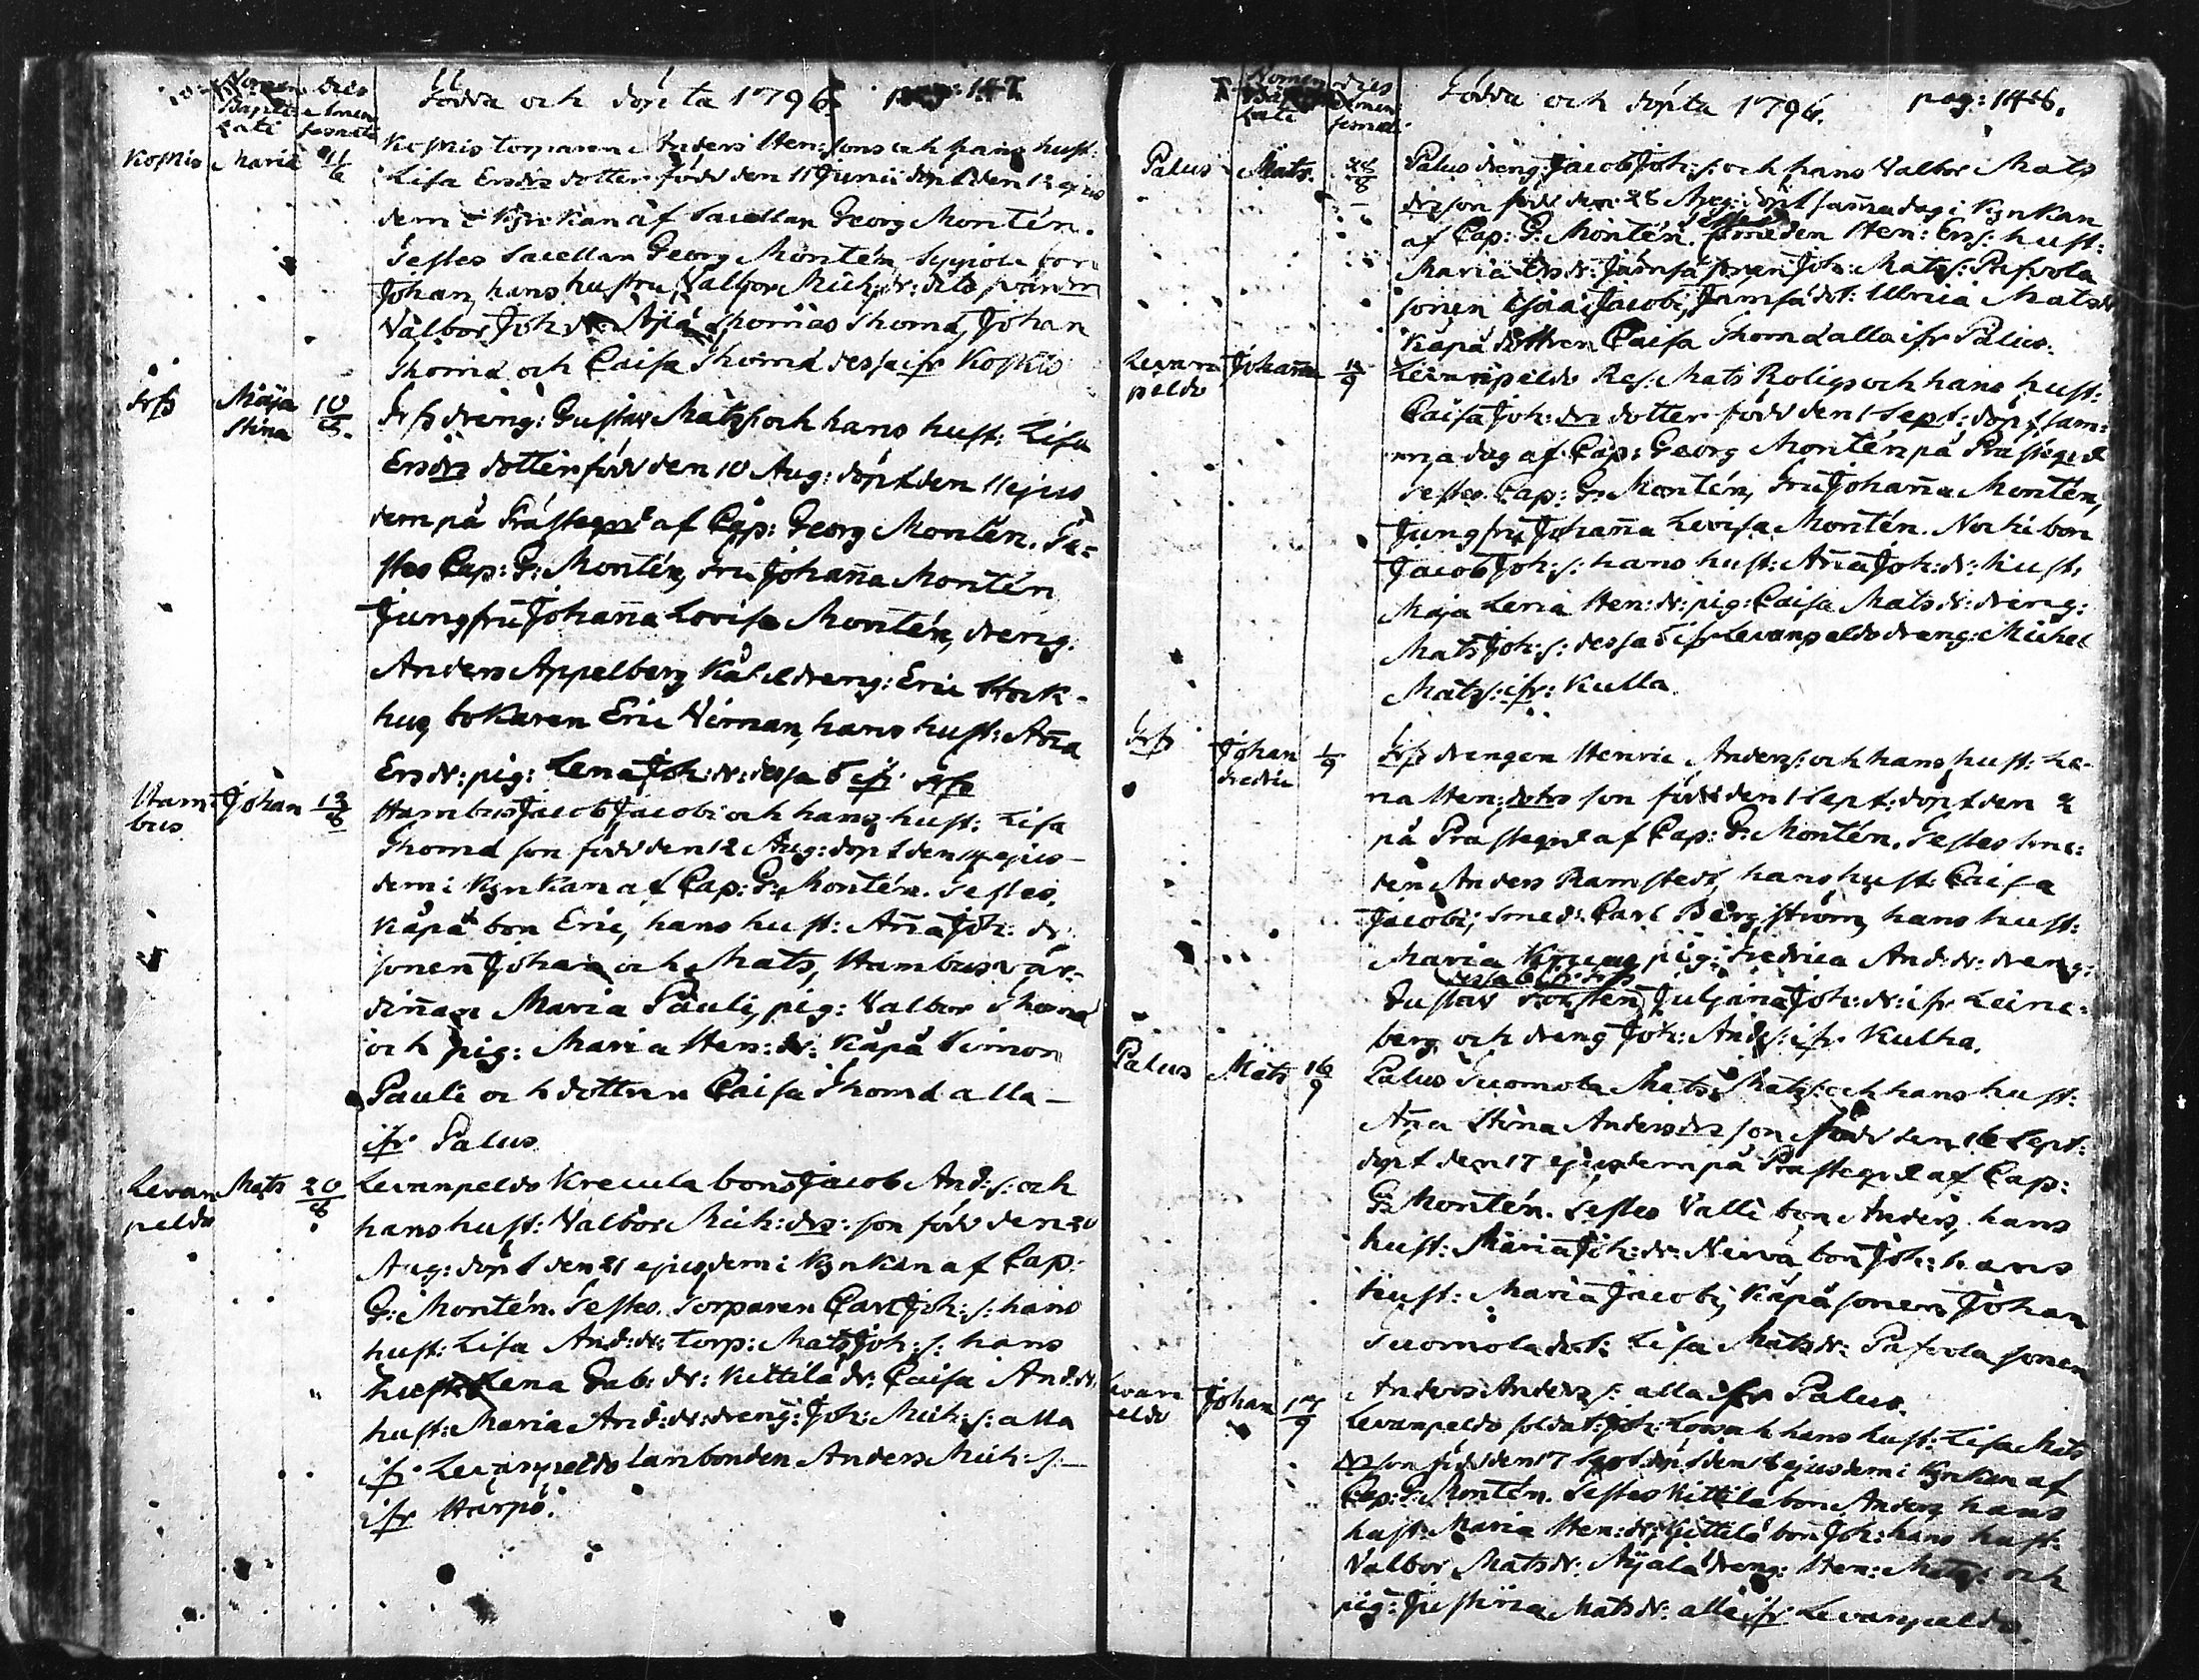 Nomen Dies
Bapti- emen-
zati
Födda och döpta 1796. pag: 147.
Koskis Maria 11/6
Koskis torparen Anders Hen:sons och hans hust:
Lisa Ersdrs dotter född den 11 Junii döpt den 12 ejus
dem i Kyrkan af Sacellan Georg Montén.
Testes Sacellan Georg Montén, bon
Johan, hans hustru Valbor Mich:dr:
Valbor Joh:dr: Thomas Thomæ, Johan
Thomæ och Caisa Thomæ dessa ifr Koskis
Frß Maja Stina 10/8
Frß dreng: Gustav Mats:s och hans hust: Lisa
Ersdrs dotter född den 10 Aug: döpt den 11 ejus
dem på Prästegrd af Cap: Georg Montén. Te=
stes Cap: G: Montén, Fru Johanna Montén
Jungfru Johanna Lovisa Montén, dreng:
Anders Appelberg dreng: Eric Stock-
hus, bokaren Eric Nirman, hans hust: Anna
Ersdr: pig: Lena Joh:dr: dessa 5 ifr Frß
Ham bus Johan 12/8
Hambus Jacob Jacobi och hans hust: Lisa
Thomæ son född den 12 Aug: döpt den 14 ejus-
dem i Kyrkan af Cap: G: Montén. Testes.
Käpä bon Eric, hans hust: Anna Joh:dr:
sonen Johan och Mats, Hambus vär-
dinnan Maria Pauli, pig: Valbor Thomæ
och pig: Maria Hen:dr: Käpä Simon
Pauli och dottren Caisa Thomæ alla-
ifr Palus.
Levan peldo Mats 20/8
Levanpeldo Krecula bons Jacob And:s: och
hans hust: Valbor Mich:drs: son född den 20
Aug: döpt den 21 ejusdem i Kyrkan af Cap:
G: Montén. Testes. Torparen Carl Joh:s: hans
hust: Lisa And:dr: torp: Mats Joh:s: hans
hust: Lena Gab:dr: Kittilä dr: Caisa And:dr:
hust: Maria And:dr: dreng: Joh: Mich:s: alla
ifr Levanpeldo lanbonden Anders Mich:s:-
ifr Harpö.
Nomen Dies
Födda och döpta 1796. pag: 148.
Palus Mats. 28/8
Palus dreng: Jacob Joh:s: och hans Valbor Mats
drs son född den 28 Aug: döpt samma dag i Kyrkan
af Cap: G: Montén. Testes smeden Hen: Ers: hust:
Maria Ersdr: Jämsä sonen Joh: Mats:s: Pafvola
sonen Esaia Jacobi, Jämsä dot: Ulrica Matsdr
Käpä dottren Caisa Thomæ alla ifr Palus.
Levan peldo Johanna 1/9
Levanpeldo Res: Mats Roligs och hans hust:
Caisa Joh:drs dotter född den 1 Sept: döpt sam-
ma dag af Cap: Georg Montén på Prästegrd
Testes. Cap: G: Montén, Fru Johanna Montén,
Jungfru Johanna Lovisa Montén. bon
Jacob Joh:s: hans hust: Anna Joh:dr: hust:
Maja Lena Hen:dr: pig: Caisa Matsdr: dreng:
Mats Joh:s: dessa 5 ifr Levanpeldo dreng: Michel
Mats:s: ifr: Kulla.
Frß Johan Fredric 1/9
Frß drengen Henric Anders:s: och hans hust: Le-
na Hen:dotrs son född den 1 Sept: döpt den 2
på Prästegrd af Cap: G: Montén. Testes Sme-
den Anders Ramstedt, hans hust: Caisa
Jacobi; Smed: Carl Bergström, hans hust:
Maria pig: Fredrica And:dr: dreng:
dessa 6 ifr Frß
Gustav Torsten, Juliana Joh:dr: ifr Leine-
berg och dreng Joh: And:s: ifr Kulla.
Palus Mats 16/9
Palus Suomola Mats Mats:s: och hans hust:
Anna Stina Andersdrs son född den 16 Sept:
döpt den 17 ejusdem på Prästegrd af Cap:
G: Montén. Testes Valli bon Anders, hans
hust: Maria Joh:dr: Nirva bon Joh: hans
hust: Maria Jacobi, Käpä sonen Johan
Suomola dot: Lisa Matsdr: Pafvola sonen
Anders Anders:s: alla ifr Palus.
Levan peldo Johan 17/9
Levanpeldo soldat: Joh: och hans hust: Lisa Mats
drs son född den 17 Sept döpt den 18 ejusdem i Kyrkan af
Cap: G: Montén. Testes Kittilä bon Anders hans
hust: Maria Hen:dr: Kittilä bon Joh: hans hust:
Valbor Matsdr: Äyälä dreng: Hen: Mats:s: och
pig: Justina Matsdr: alla ifr Levanpeldo.